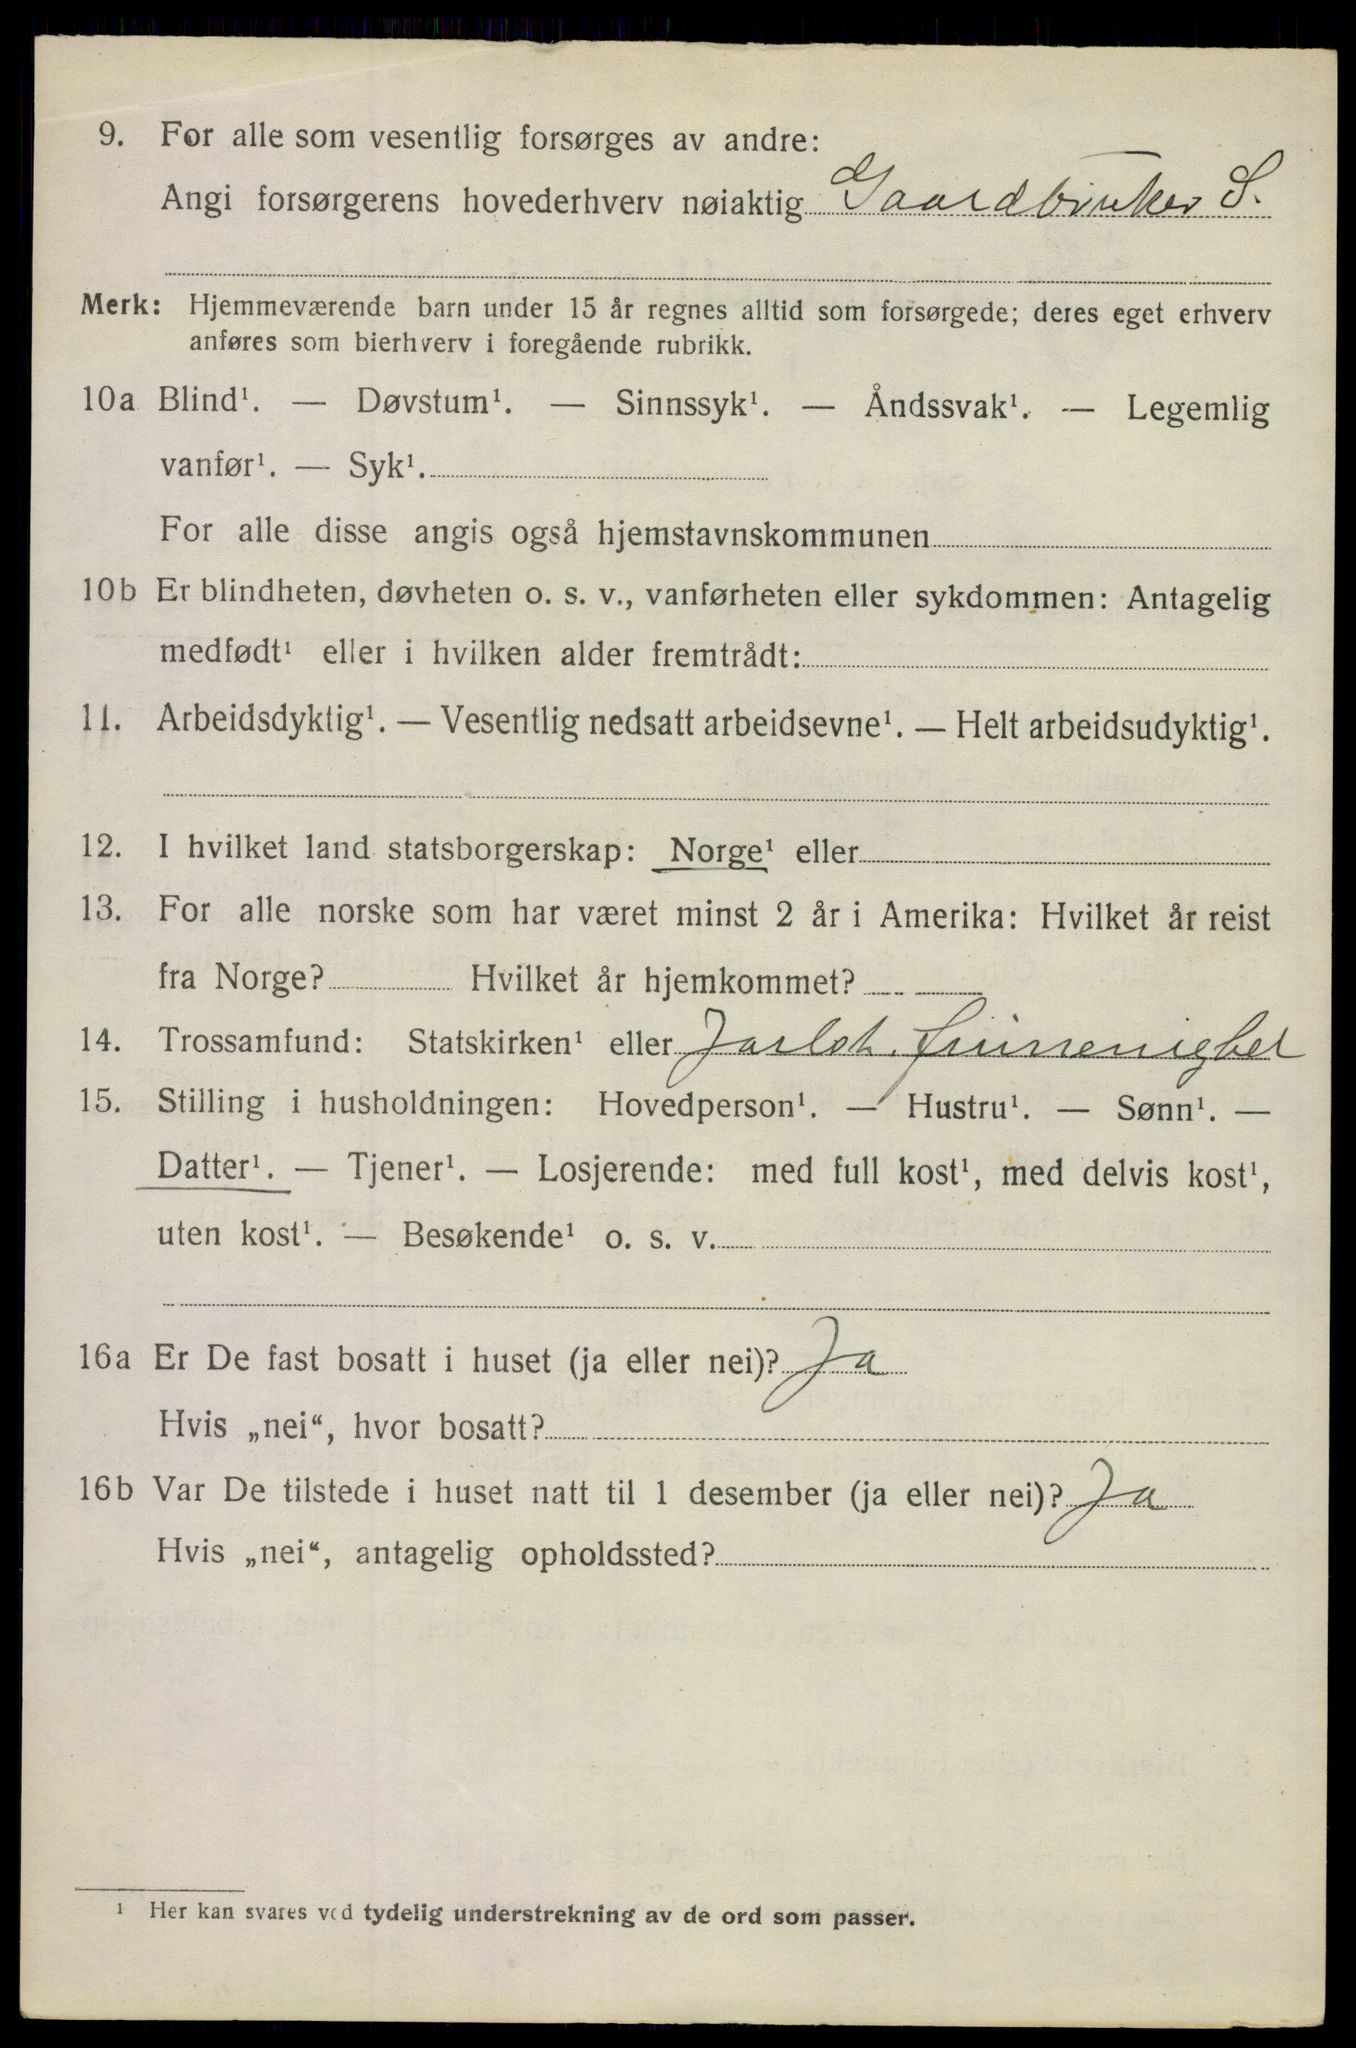 9. For alle som vesentlig forsørges av andre:
Angi forsørgerens hovederhverv nøiaktig Gaardbruker S.
Merk: Hjemmeværende barn under 15 år regnes alltid som forsørgede; deres eget erhverv
anføres som bierhverv i foregående rubrikk.
10a Blind¹. — Døvstum¹. — Sinnssyk¹. — Åndssvak¹. — Legemlig
vanfør¹. — Syk¹.
For alle disse angis også hjemstavnskommunen
10b Er blindheten, døvheten o. s. v., vanførheten eller sykdommen: Antagelig
medfødt¹ eller i hvilken alder fremtrådt:
11. Arbeidsdyktig¹. — Vesentlig nedsatt arbeidsevne¹. — Helt arbeidsudyktig¹.
12. I hvilket land statsborgerskap: Norge¹ eller
13. For alle norske som har været minst 2 år i Amerika: Hvilket år reist
fra Norge? Hvilket år hjemkommet?
14. Trossamfund: Statskirken¹ eller Jarlsb. frimenighet
15. Stilling i husholdningen: Hovedperson¹. — Hustru¹. — Sønn¹. —
Datter¹. — Tjener¹. — Losjerende: med full kost¹, med delvis kost¹,
uten kost¹. — Besøkende¹ o. s. v.
16a Er De fast bosatt i huset (ja eller nei)? Ja
Hvis „nei“, hvor bosatt?
16b Var De tilstede i huset natt til 1 desember (ja eller nei)? Ja
Hvis „nei“, antagelig opholdssted?
¹ Her kan svares ved tydelig understrekning av de ord som passer.